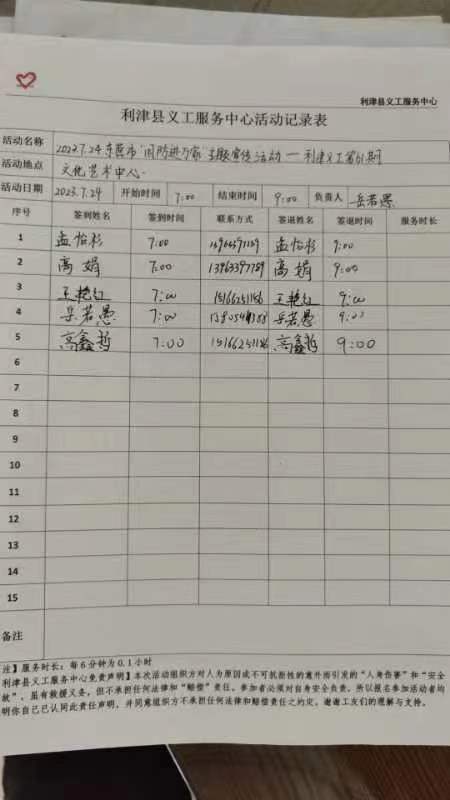 利津县义工服务中心
利津县义工服务中心活动记录表
活动名称 2023.7.24东营市"消防进万家"主题宣传活动——利津义工第61期
活动地点 文化艺术中心.
活动日期 2023.7.24 开始时间 7:00 结束时间 9:00 负责人 岳若愚
序号 签到姓名 签到时间 联系方式 签退姓名 签退时间 服务时长
1 孟怡杉 7:00 孟怡杉 9:00
2 高娟 7:00 高娟 9:00
3 王艳红 7:00 王艳红 9:00
4 岳若愚 7:00 岳若愚 9:00
5 高鑫哲 7:00 高鑫哲 9:00
6
7
8
9
10
11
12
13
14
15
备注
注】服务时长:每6分钟为0.1小时
利津县义工服务中心免责声明】本次活动组织方对人为原因或不可抗拒性的意外所引发的"人身伤害"和"安全
故",虽有救援义务,但不承担任何法律和"赔偿"责任。参加者必须对自身安全负责。所以报名参加活动者均
明你自己已认同此责任声明,并同意组织方不承担任何法律和赔偿责任之约定。谢谢工友们的理解与支持。